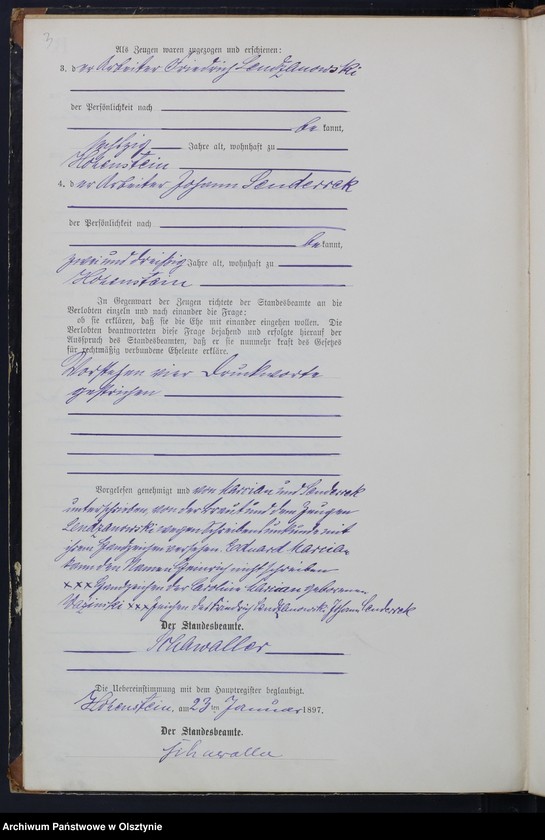 Als Zeugen waren zugezogen und erschienen:
3. der Arbeiter Friedrich Lendzanowski
der Persönlichkeit nach
bekannt,
sechzig Jahre alt, wohnhaft zu
Hohenstein
4. der Arbeiter Johann Senderrek
der Persönlichkeit nach
bekannt,
zwei und dreißig Jahre alt, wohnhaft zu
Hohenstein
In Gegenwart der Zeugen richtete der Standesbeamte an die
Verlobten einzeln und nach einander die Frage:
ob sie erklären, daß sie die Ehe mit einander eingehen wollen. Die
Verlobten beantworteten diese Frage bejahend und erfolgte hierauf der
Ausspruch des Standesbeamten, daß er sie nunmehr kraft des Gesetzes
für rechtmäßig verbundene Eheleute erkläre.
Vorstehen vier Druckworte
gestrichen
Vorgelesen genehmigt und von Marcian und Senderrek
unterschrieben, von der Braut und dem Zeugen
Lendzanowski wegen Schreibensunkunde mit
ihrem Handzeichen versehen. Eduard Marcian
kann den Namen Heinrich nicht schreiben
xxx Handzeichen der Caroline Marcian geborenen
xxx Zeichen des Friedrich Lendzanowski. Johann Senderrek
Der Standesbeamte.
Schawaller
Die Uebereinstimmung mit dem Hauptregister beglaubigt.
Hohenstein, am 23 ten Januar 1897.
Der Standesbeamte.
Schawaller
Archiwum Państwowe w Olsztynie